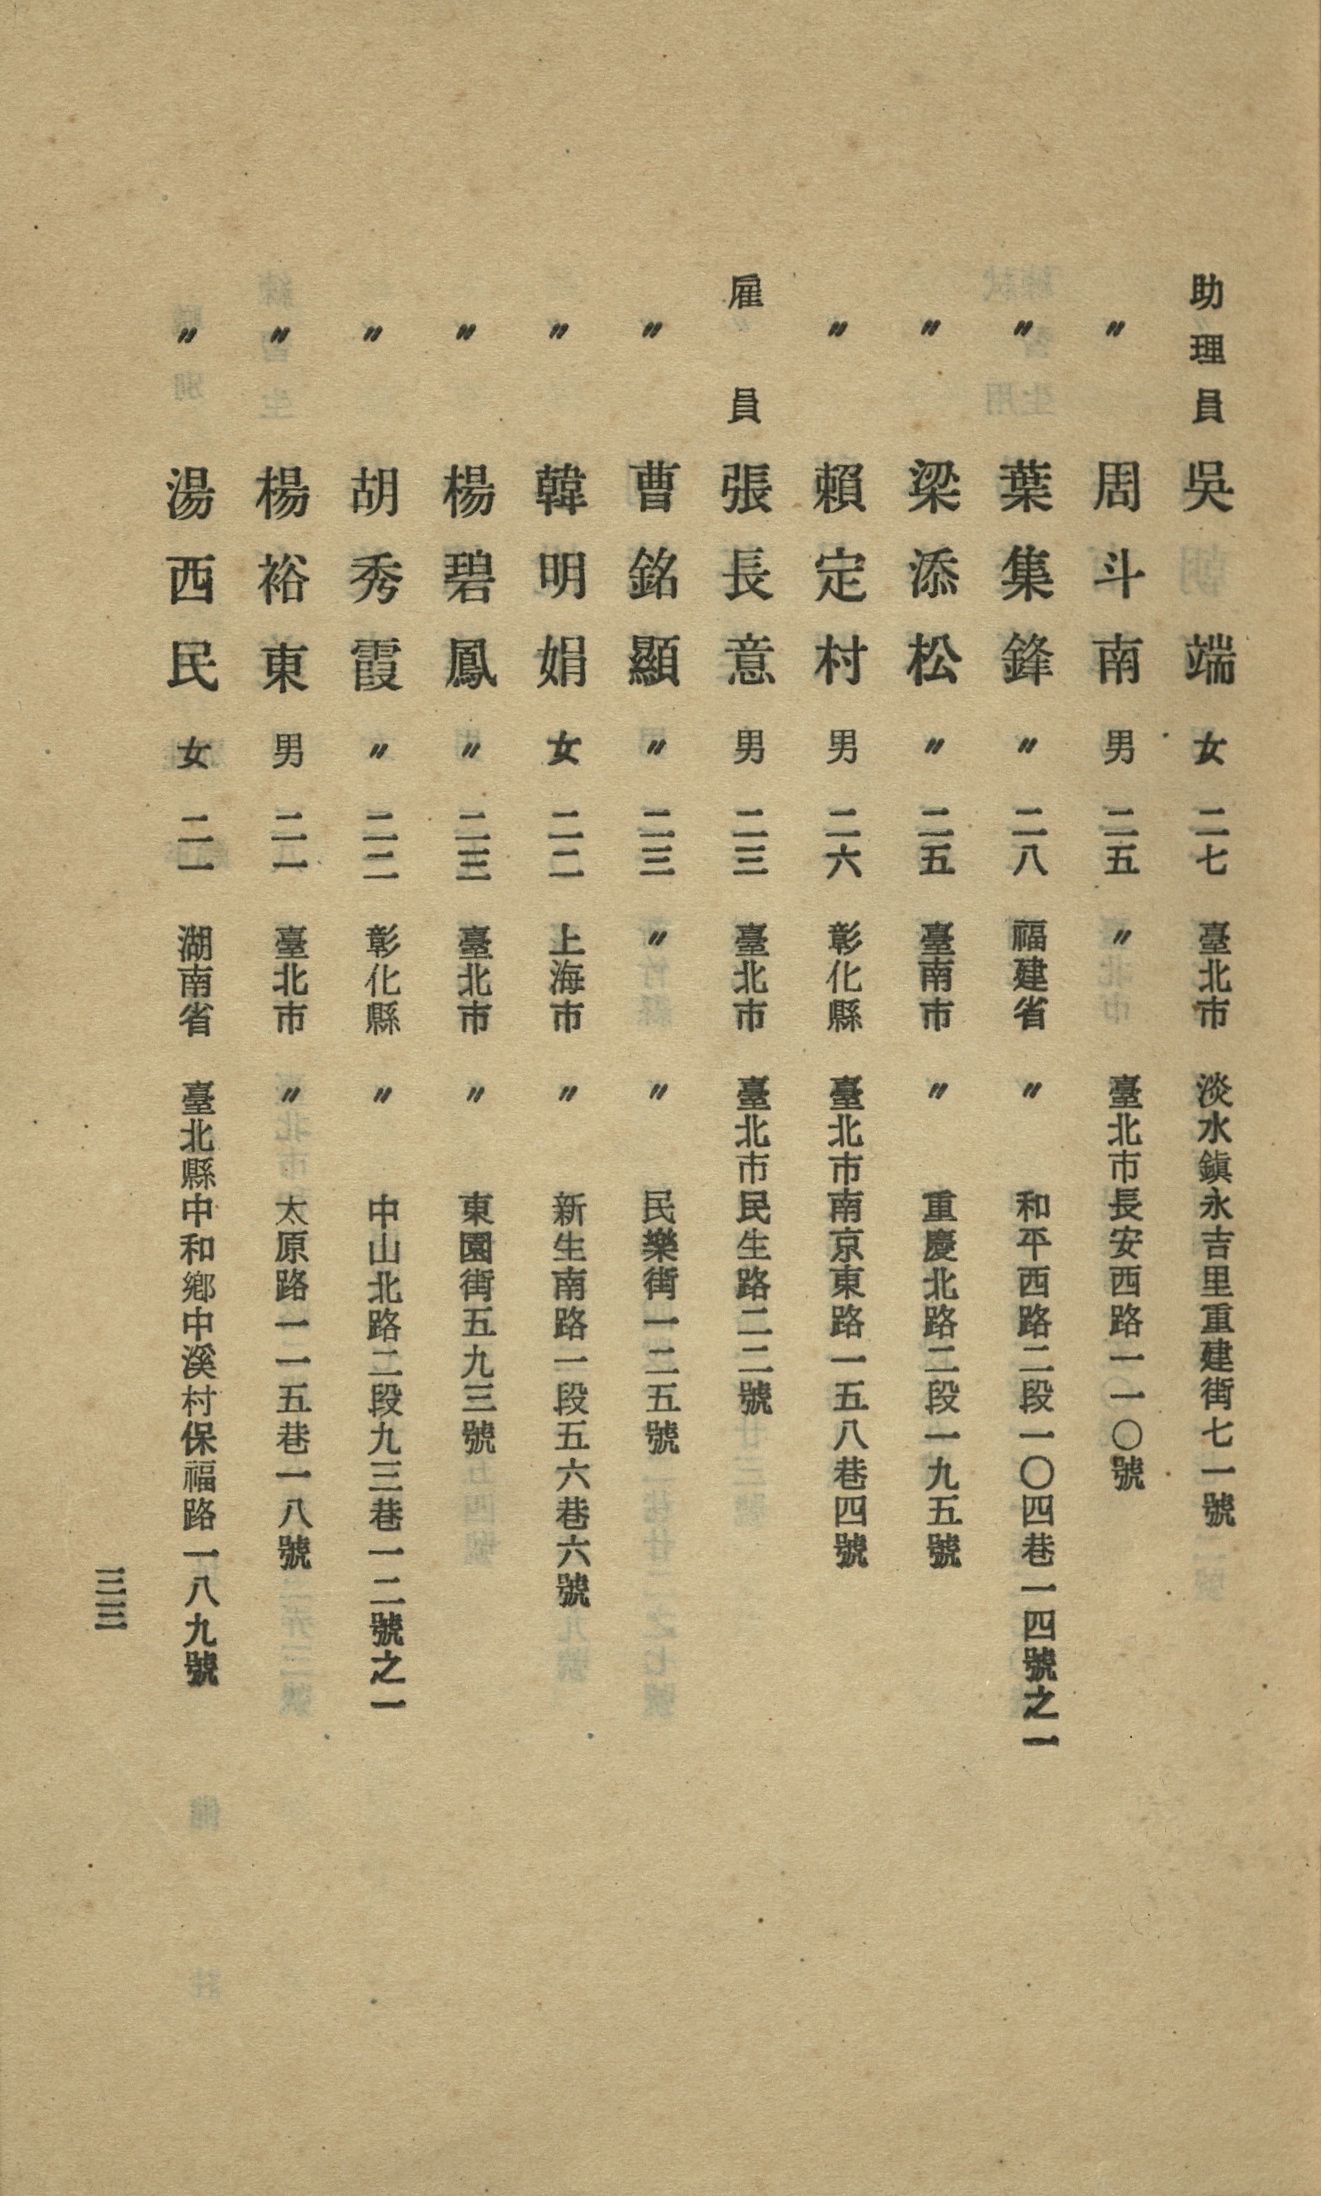 助理員 吳端 女 二七 臺北市 淡水鎭永吉里重建街七一號
〃 周斗南 男 二五 〃 臺北市長安西路一一〇號
〃 葉集鋒 〃 二八 福建省 〃 和平西路二段一〇四巷一四號之一
〃 梁添松 〃 二五 臺南市 〃 重慶北路二段一九五號
〃 賴定村 男 二六 彰化縣 臺北市南京東路一五八巷四號
雇員 張長意 男 二三 臺北市 臺北市民生路二二號
〃 曹銘顯 〃 二三 〃 〃 民樂街一二五號
〃 韓明娟 女 二二 上海市 〃 新生南路一段五六巷六號
〃 楊碧鳳 〃 二三 臺北市 〃 東園街五九三號
〃 胡秀霞 〃 二二 彰化縣 〃 中山北路二段九三巷一二號之一
〃 楊裕東 男 二一 臺北市 〃 太原路一一五巷一八號
〃 湯西民 女 二一 湖南省 臺北縣中和鄉中溪村保福路一八九號
三三